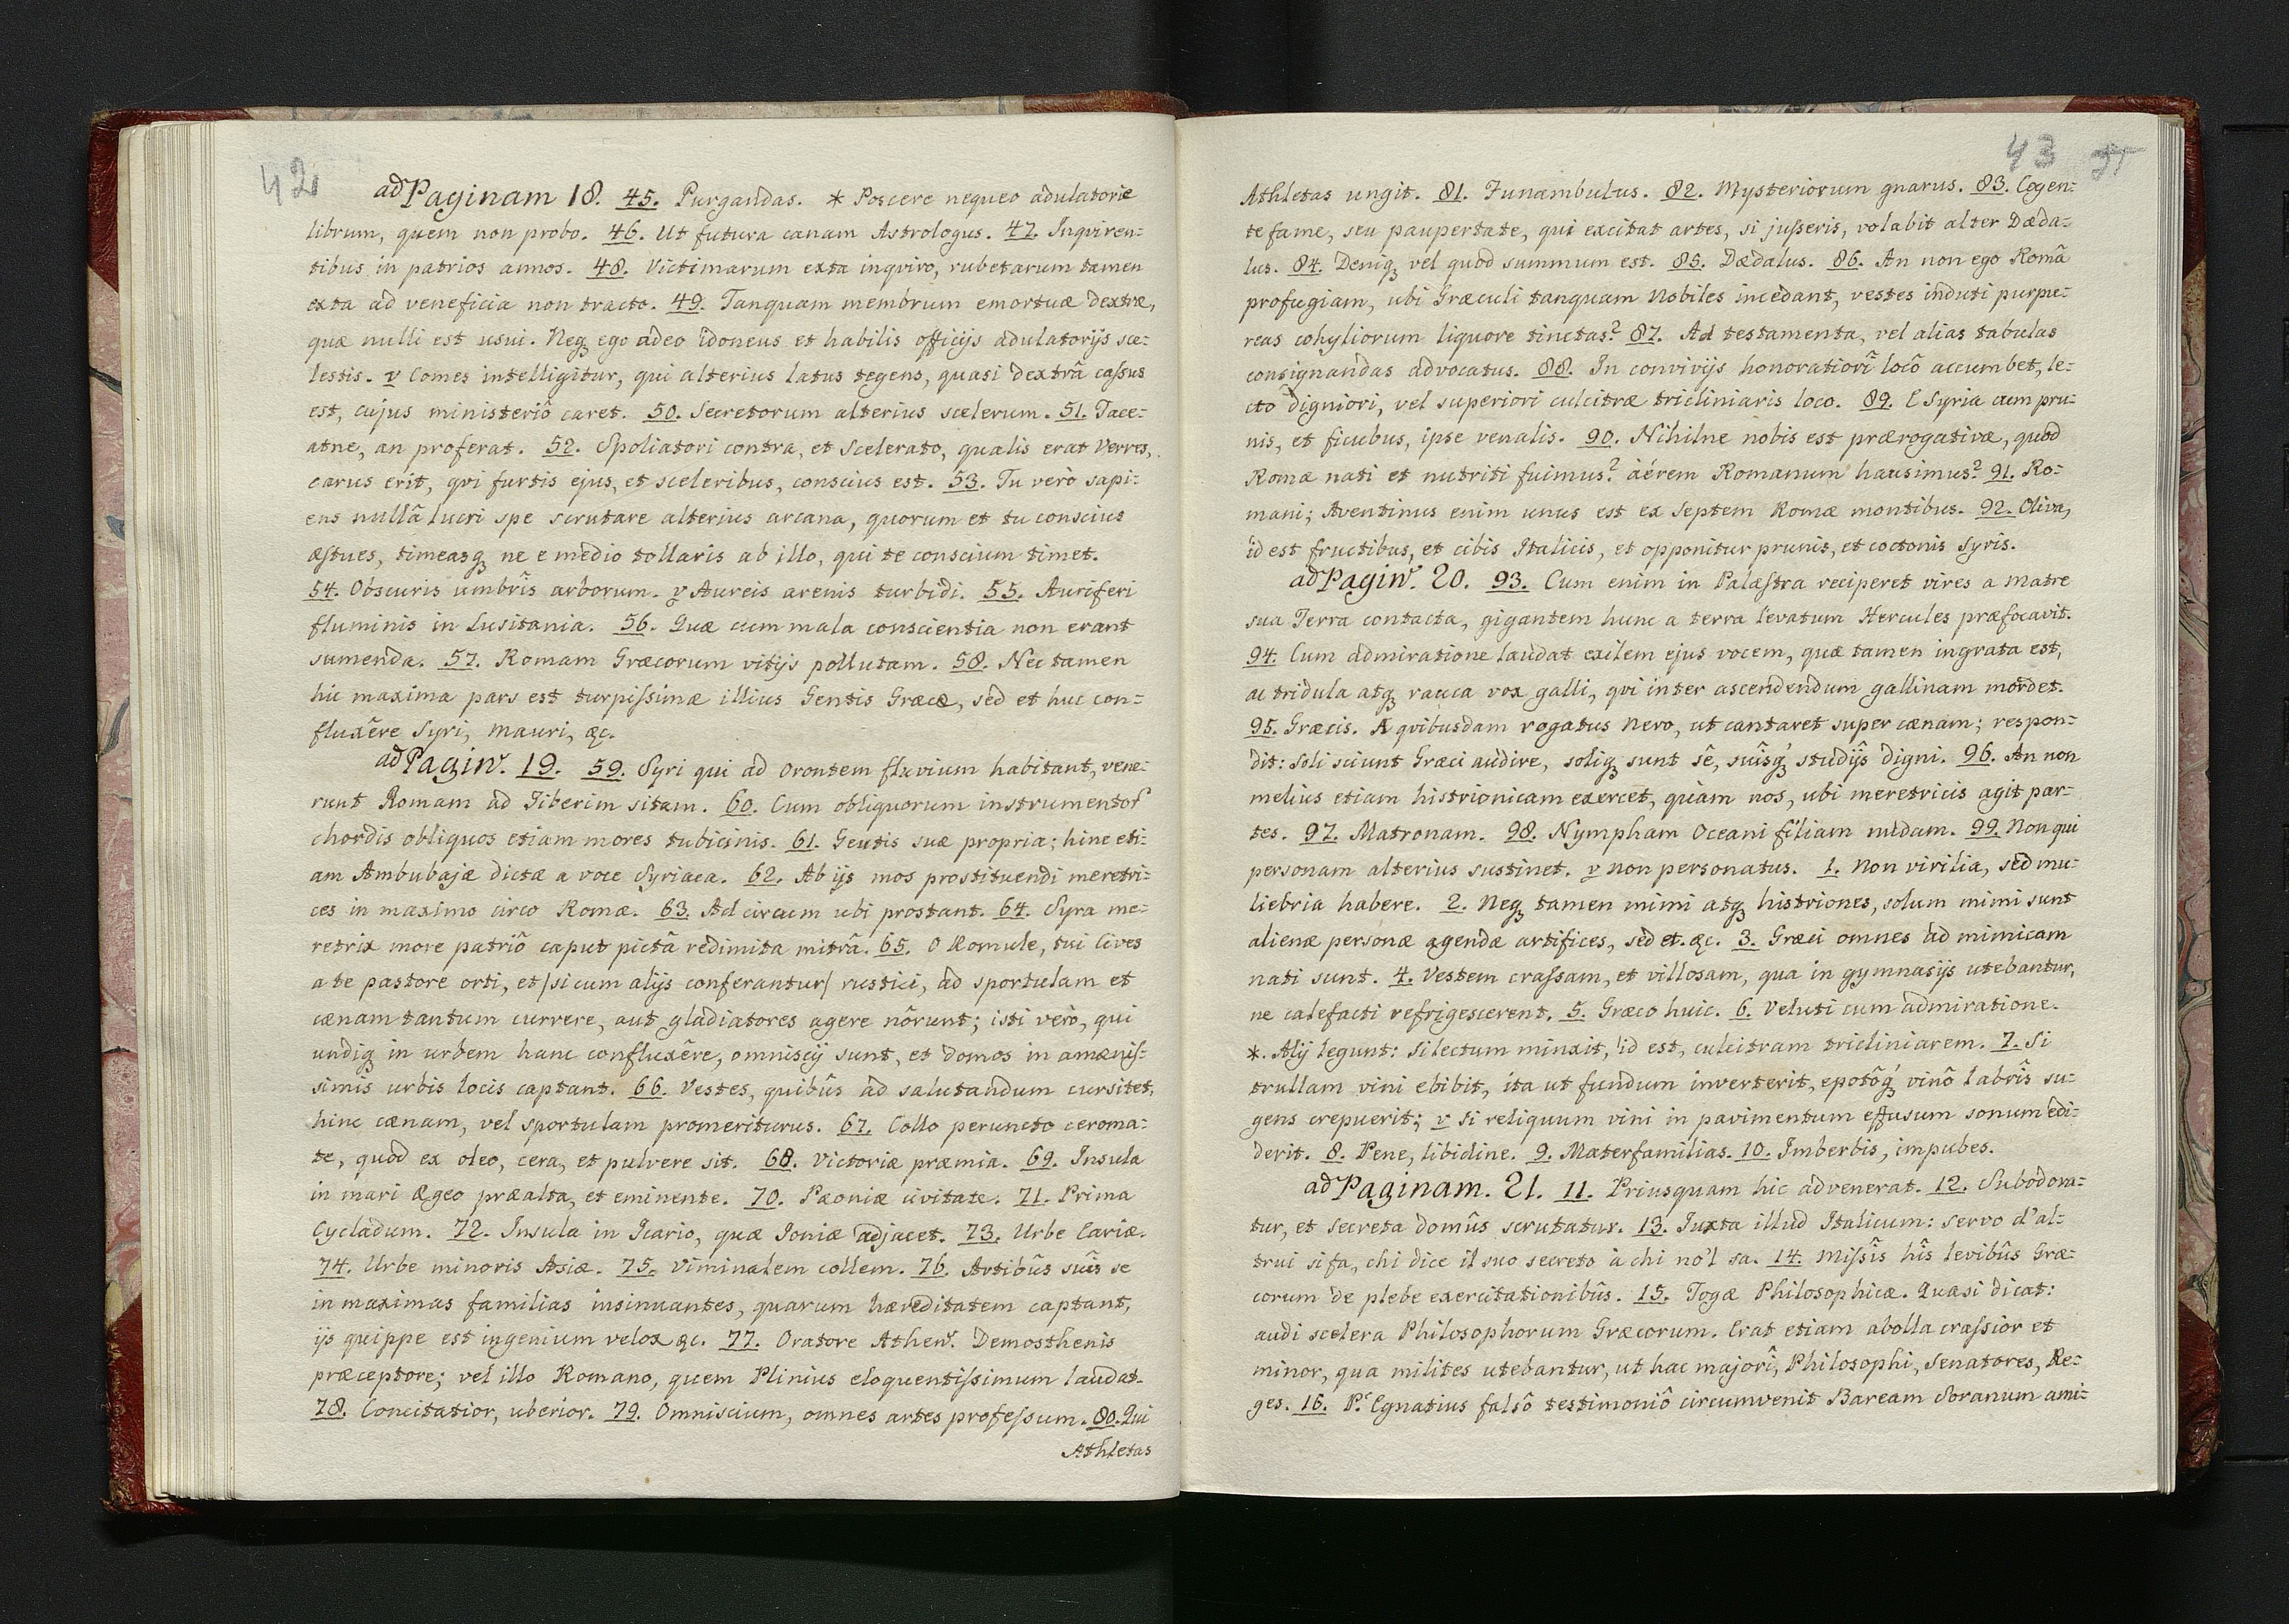 42
ad Paginam 18. 45. Purgandas. * Poscere nequeo adulatorie
librum, quem non probo. 46. Ut futura canam Astrologus. 47. Inqviren=
tibus in patrios annos. 48. Victimarum exta inqviro, rubetarum tamen
exta ad veneficia non tracto. 49. Tanquam membrum emortuæ dextræ,
quæ nulli est usui. Neq₃ ego adeo idoneus et habilis officijs adulatorijs sce=
lestis. v Comes intelligitur, qui alterius latus tegens, quasi dextrâ cassus
est, cujus ministeriô caret. 50. Secretorum alterius scelerum. 51. Tace=
atne, an proferat. 52. Spoliatori contra, et scelerato, qualis erat Verres,
carus erit, qvi furtis ejus, et sceleribus, conscius est. 53. Tu verò sapi=
ens nullâ lucri spe scrutare alterius arcana, quorum et tu conscius
æstues, timeasq₃ ne e medio tollaris ab illo, qui te conscium timet.
54. Obscuris umbrîs arborum. v Aureis arenis turbidi. 55. Auriferi
fluminis in Lusitania. 56. Quæ cum mala conscientia non erant
sumenda. 57. Romam Græcorum vitijs pollutam. 58. Nec tamen
hic maxima pars est turpissimæ illius Gentis Græcæ, sed et huc con=
fluxêre Syri, Mauri, &c.
ad Pagin. 19. 59. Syri qui ad Orontem fluvium habitant, vene=
runt Romam ad Tiberim sitam. 60. Cum obliquorum instrumentor
chordis obliquos etiam mores tubicinis. 61. Gentis suæ propria; hinc eti=
am Ambubajæ dictæ a voce Syriaca. 62. Ab ijs mos prostituendi meretri=
ces in maximo circo Romæ. 63. Ad circum ubi prostant. 64. Syra me=
retrix more patriô caput pictâ redimita mitrâ. 65. O Romule, tui Cives
a te pastore orti, et /si cum alijs conferantur/ rustici, ad sportulam et
cænam tantum currere, aut gladiatores agere nôrunt; isti verò, qui
undiq₃ in urbem hanc confluxêre, omniscij sunt, et domos in amænis=
simis urbis locis captant. 66. Vestes, quibûs ad salutandum cursitet,
hinc cænam, vel sportulam promeriturus. 67. Collo peruncto ceroma=
te, quod ex oleo, cera, et pulvere sit. 68. Victoriæ præmia. 69. Insula
in mari Ægeo præalta, et eminente. 70. Pæoniæ civitate. 71. Prima
Cycladum. 72. Insula in Icario, quæ Ioniæ adjacet. 73. Urbe Cariæ.
74. Urbe minoris Asiæ. 75. Viminalem collem. 76. Artibûs suîs se
in maximas familias insinuantes, quarum hæreditatem captant,
ijs quippe est ingenium velox &c. 77. Oratore Athen. Demosthenis
præceptore; vel illo Romano, quem Plinius eloquentissimum laudat.
78. Concitatior, uberior. 79. Omniscium, omnes artes professum. 80. Qui
Athletas
43
Athletas ungit. 81. Funambulus. 82. Mysteriorum gnarus. 83. Cogen=
te fame, seu paupertate, qui excitat artes, si jusseris, volabit alter Dæda=
lus. 84. Deniq₃ vel quod summum est. 85. Dædalus. 86. An non ego Româ
profugiam, ubi Græculi tanquam Nobiles incedant, vestes induti purpu=
reas cohyliorum liquore tinctas? 87. Ad testamenta, vel alias tabulas
consignandas advocatus. 88. In convivijs honoratiorî locô accumbet, le=
cto digniori, vel superiori culcitræ tricliniaris loco. 89. E Syria cum pru=
nis, et ficubus, ipse venalis. 90. Nihilne nobis est prærogativæ, quod
Romæ nati et nutriti fuimus? áérem Romanum hausimus? 91. Ro=
mani; Aventinus enim unus est ex Septem Romæ montibus. 92. Oliva,
id est fructibus, et cibis Italicis, et opponitur prunis, et coctonis Syris.
ad Pagin. 20. 93. Cum enim in Palæstra reciperet vires a matre
sua Terra contacta, gigantem hunc a terra levatum Hercules præfocavit.
94. Cum admiratione laudat exilem ejus vocem, quæ tamen ingrata est,
ac tridula atq₃ rauca vox galli, qvi inter ascendendum gallinam mordet.
95. Græcis. A qvibusdam rogatus Nero, ut cantaret super cænam; respon=
dit: soli sciunt Græci audire, soliq₃ sunt sê, suîsq₃ studijs digni. 96. An non
melius etiam histrionicam exercet, quàm nos, ubi meretricis agit par=
tes. 97. Matronam. 98. Nympham Oceani filiam nudam. 99. Non qui
personam alterius sustinet. v non personatus. 1. Non virilia, sed mu=
liebria habere. 2. Neq₃ tamen mimi atq₃ histriones, solum mimi sunt
alienæ personæ agendæ artifices, sed et. &c. 3. Græci omnes ad mimicam
nati sunt. 4. Vestem crassam, et villosam, qua in gymnasijs utebantur,
ne calefacti refrigescerent. 5. Græco huic. 6. Veluti cum admiratione.
*. Alij legunt: si lectum minxit, id est, culcitram tricliniarem. 7. Si
trullam vini ebibit, ita ut fundum inverterit, epotôq₃ vinô labrîs su=
gens crepuerit; v si reliquum vini in pavimentum effusum sonum edi=
derit. 8. Pene, libidine. 9. Materfamilias. 10. Imberbis, impubes.
ad Paginam. 21. 11. Priusquam hic advenerat. 12. Subodora=
tur, et secreta domûs scrutatur. 13. Iuxta illud Italicum: servo d'al=
trui si fa, chi dice il suo secreto à chi no'l sa. 14. Missîs hîs levibûs Græ=
corum de plebe exercitationibûs. 15. Togæ Philosophicæ. Quasi dicat:
audi scelera Philosophorum Græcorum. Erat etiam abolla crassior et
minor, qua milites utebantur, ut hac majorî, Philosophi, Senatores, Re=
ges. 16. P. Egnatius falsô testimoniô circumvenit Baream Soranum ami=